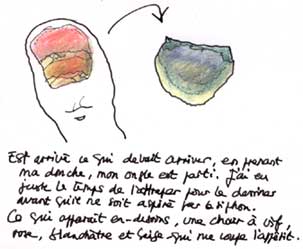 Est arrivé ce qui devait arriver, en prenant
ma douche, mon ongle est parti. J'ai eu
juste le temps de l'attraper pour le dessiner
avant qu'il ne soit aspiré par le siphon.
Ce qui apparait en-dessous, une chair à vif,
rose, blanchâtre et grise qui me coupe l'appétit.